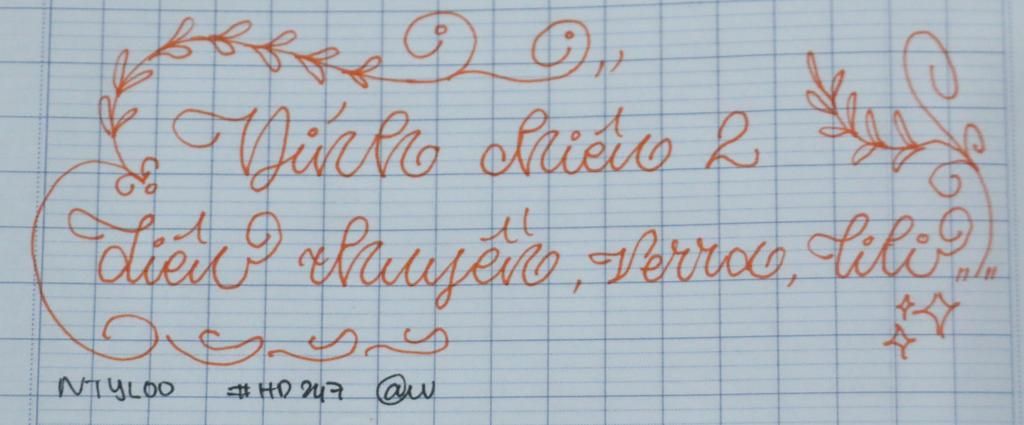 Vính chiến 2
Liến thuyền, Verra, Lili
NTYLOO #HD247 @W